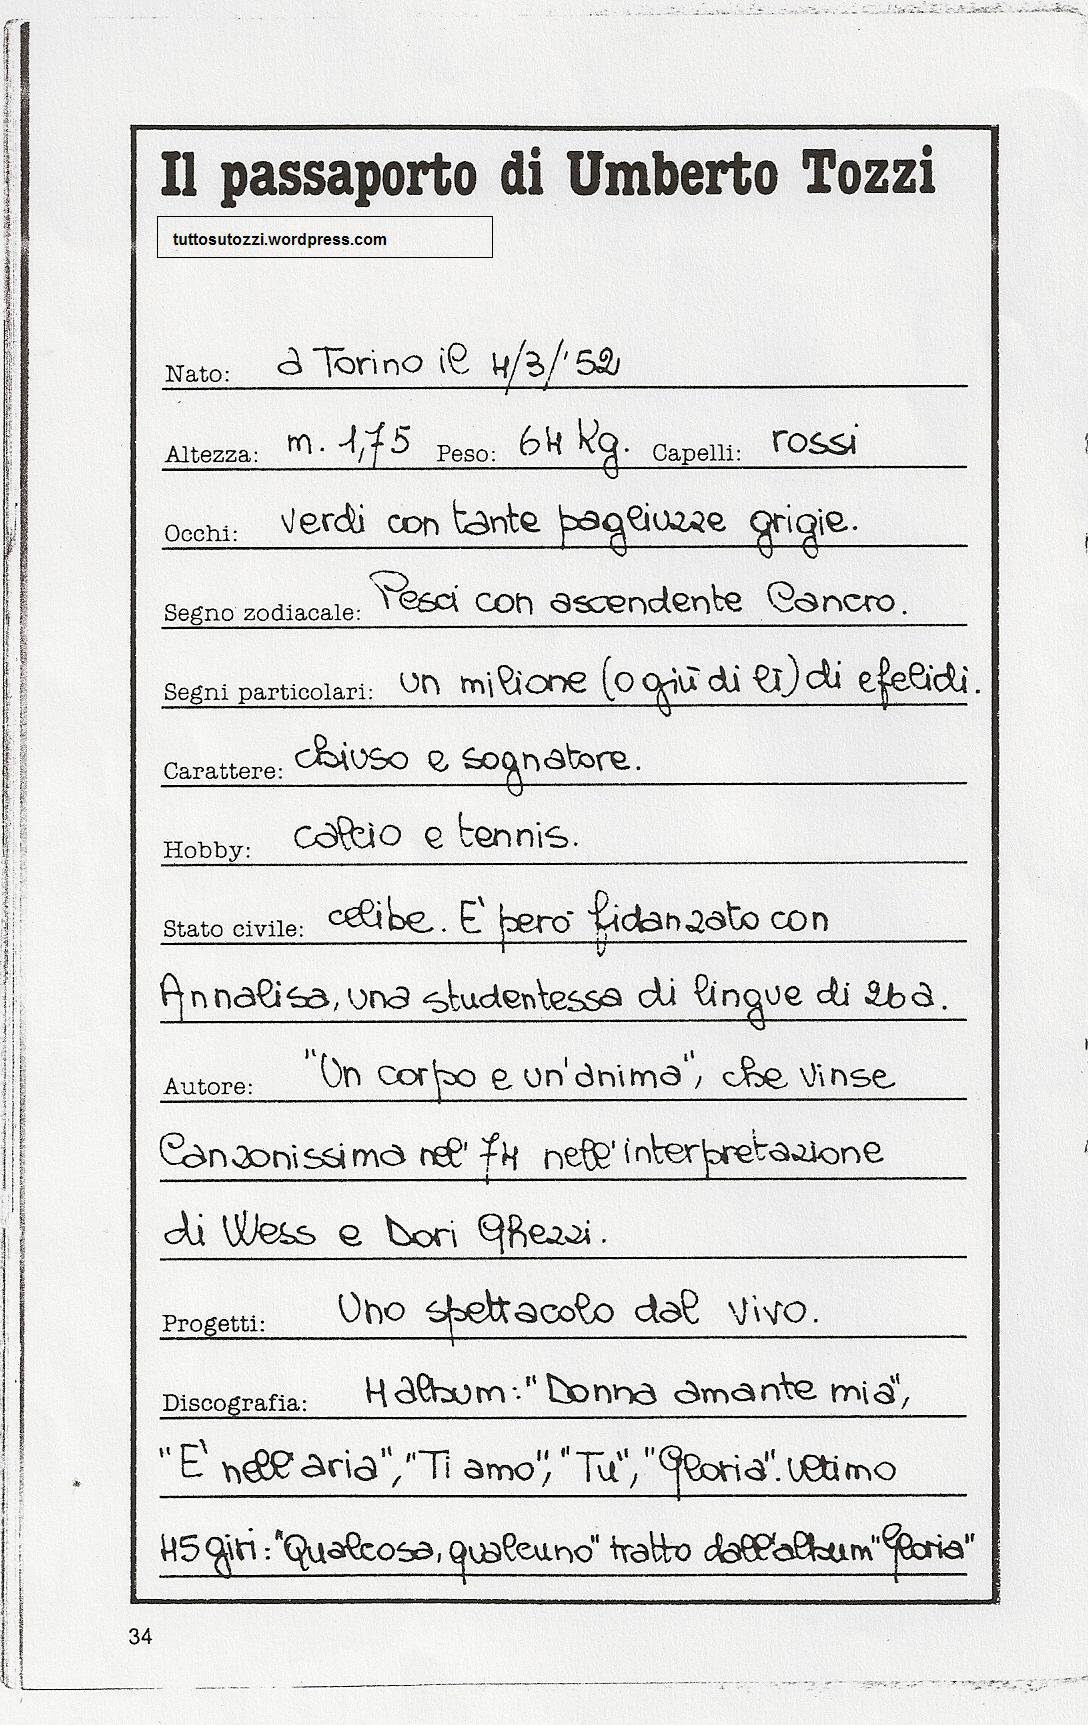 Il passaporto di Umberto Tozzi
tuttosutozzi.wordpress.com
Nato: a Torino il 4/3/'52
Altezza: m. 1,75 Peso: 64 Kg. Capelli: rossi
Occhi: verdi con tante pagliuzze grigie.
Segno zodiacale: Pesci con ascendente Cancro.
Segni particolari: un milione (o giù di lì) di efelidi.
Carattere: chiuso e sognatore.
Hobby: calcio e tennis.
Stato civile: celibe. E' però fidanzato con
Annalisa, una studentessa di lingue di 26 a.
Autore: "Un corpo e un'anima", che vinse
Canzonissima nel '74 nell'interpretazione
di Wess e Dori Ghezzi.
Progetti: Uno spettacolo dal vivo.
Discografia: 4 album: "Donna amante mia",
"E' nell'aria", "Ti amo", "Tu", "Gloria". Ultimo
45 giri: "Qualcosa, qualcuno" tratto dall'album "Gloria"
34